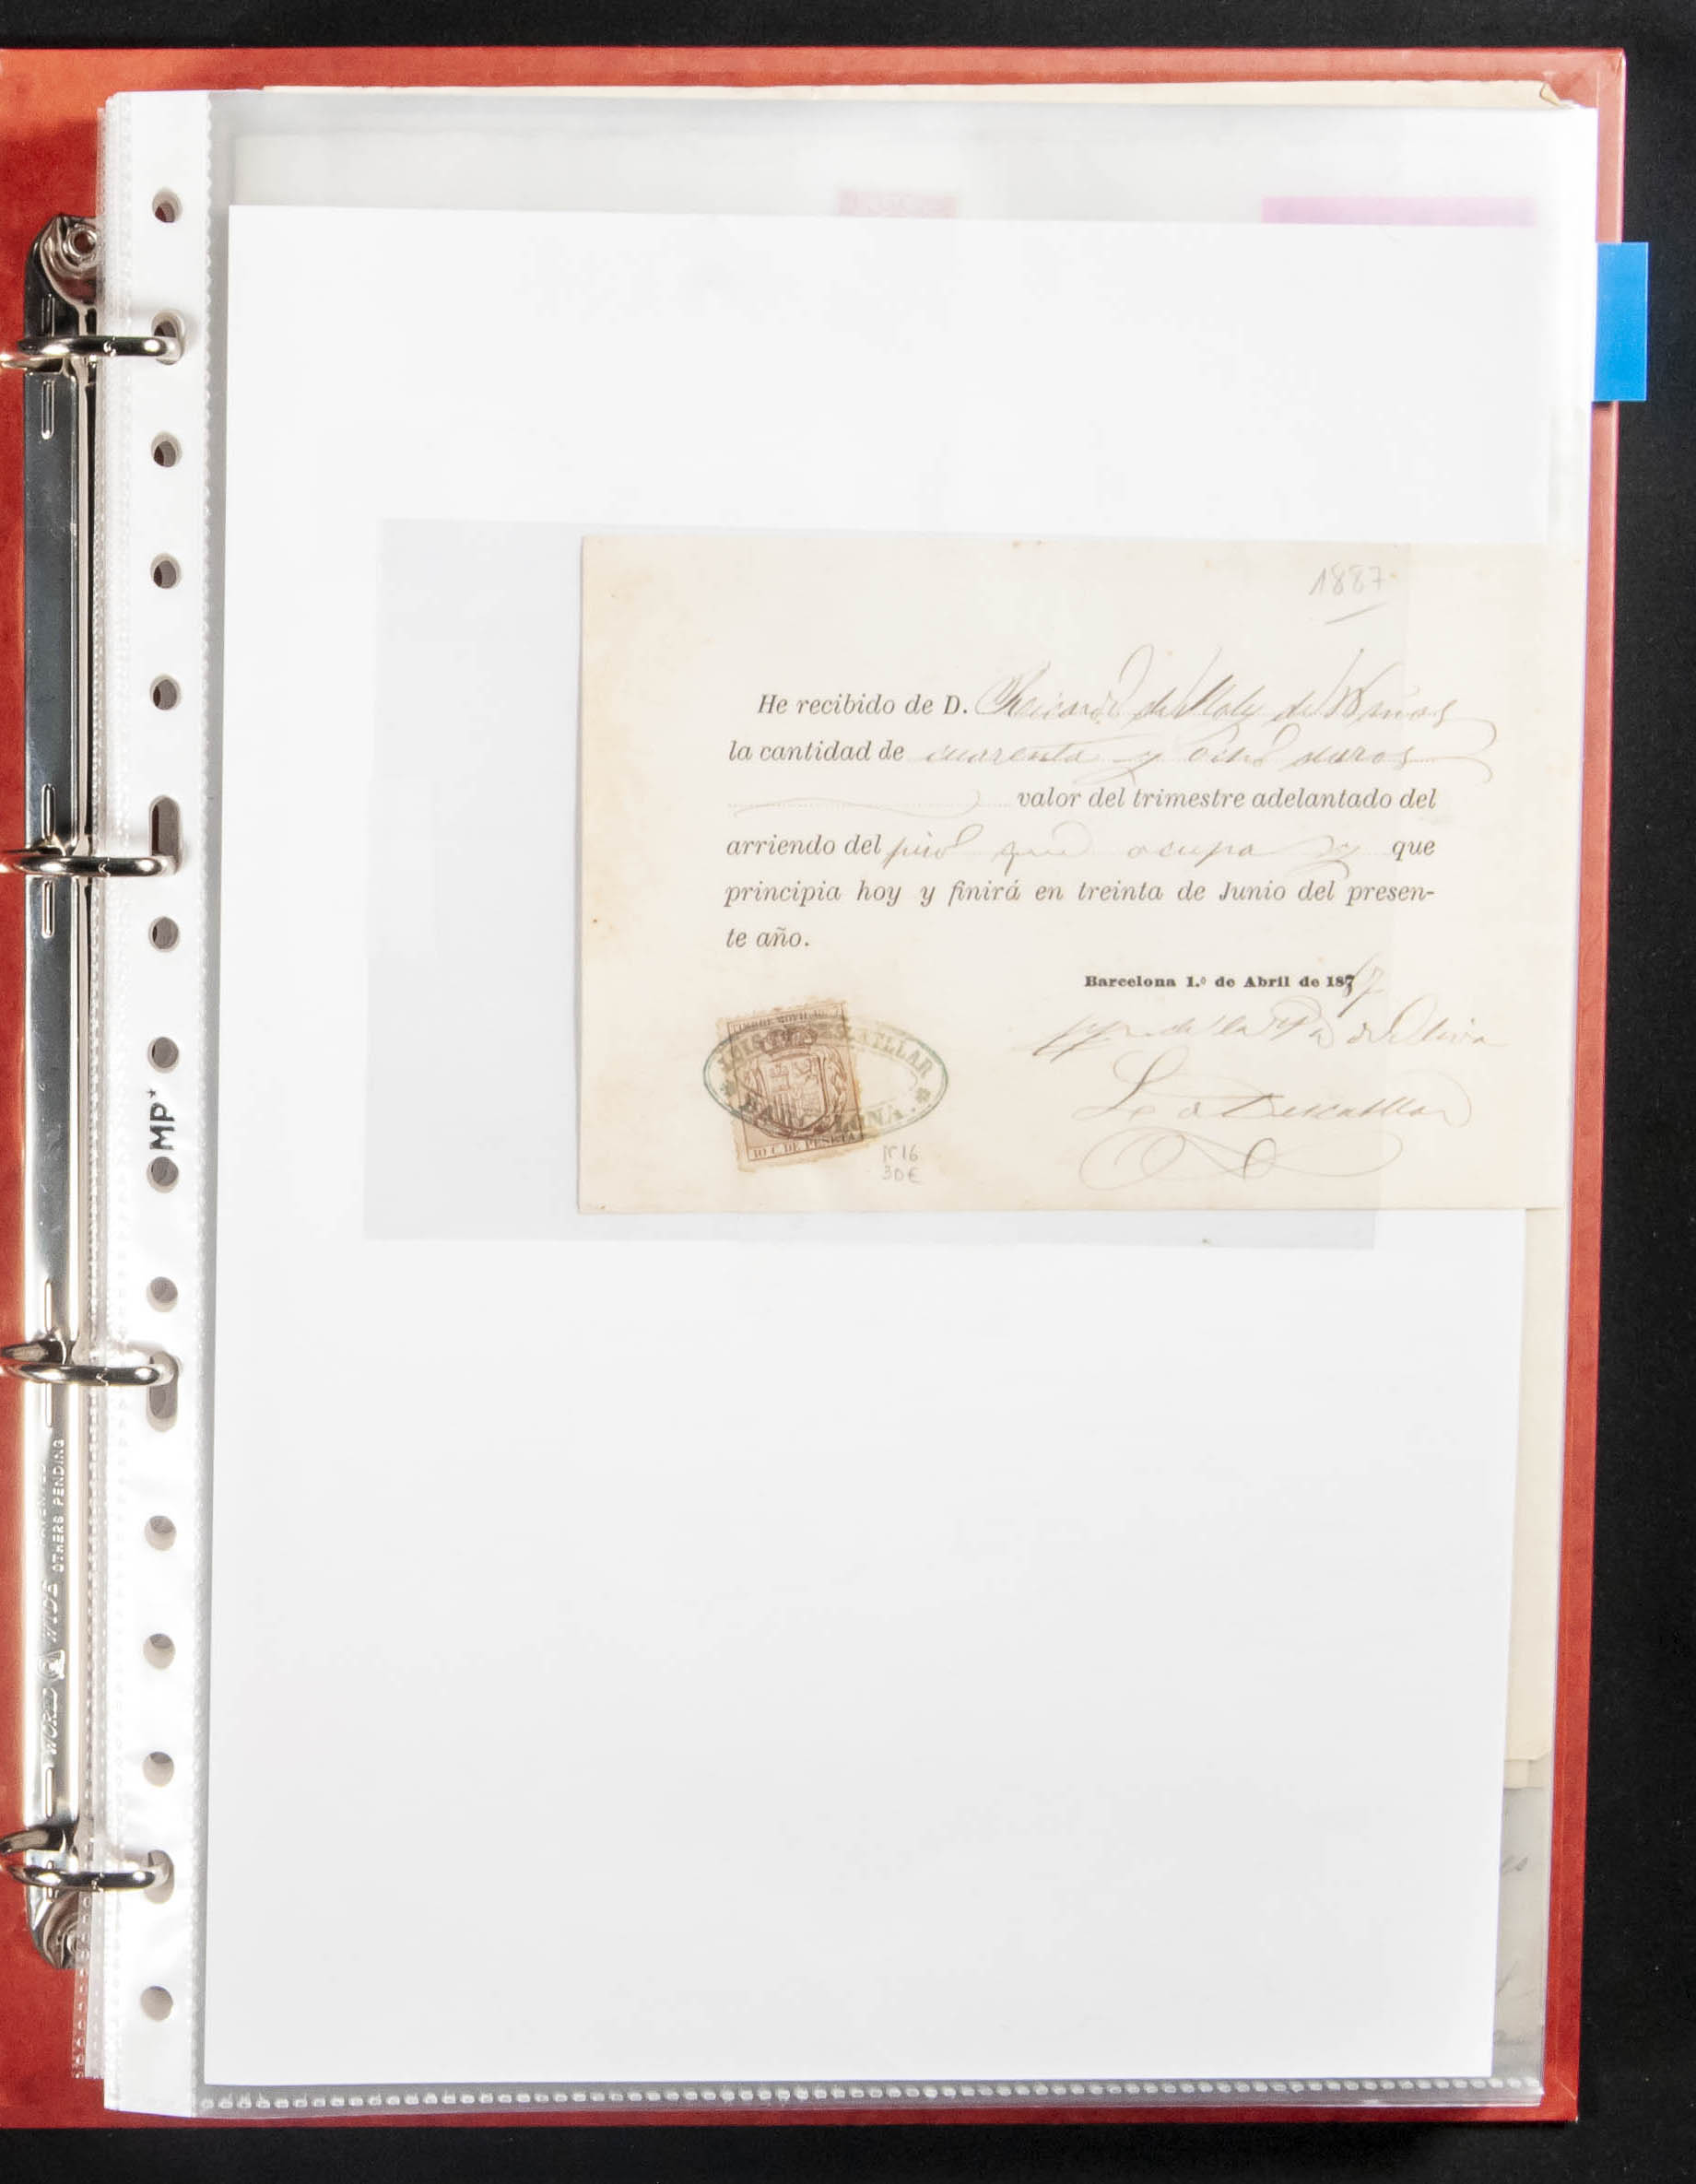 1887
He recibido de D. de
la cantidad de cuarenta y ocho duros
valor del trimestre adelantado del
arriendo del piso que ocupa y que
principia hoy y finirá en treinta de Junio del presen-
te año.
Barcelona 1.º de Abril de 187
de la de Oliva
TIMBRE MOVIL
LUIS
BARCELONA.
10 C. DE PESETA
Nº 16
30€
MP+
WORLD WIDE OTHERS PENDING